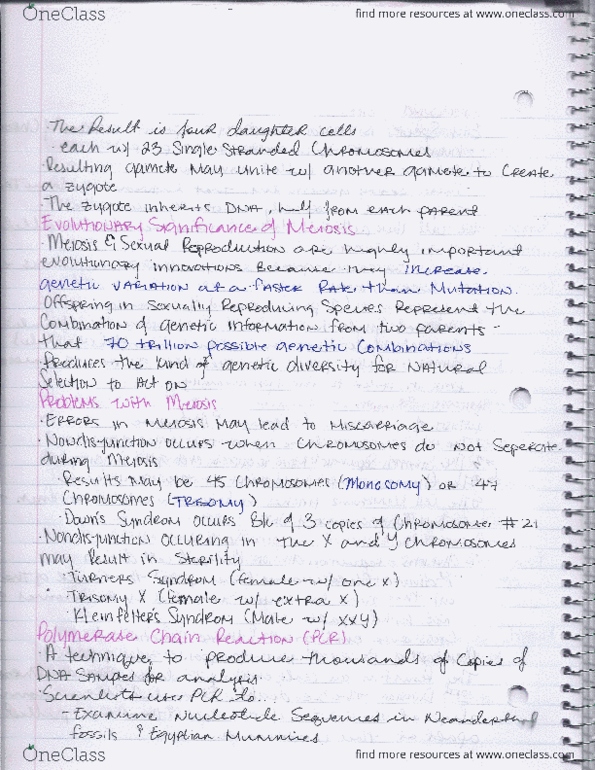 OneClass
find more resources at www.oneclass.com
· The Result is four daughter cells
· each w/ 23 Single Stranded Chromosomes
· Resulting gamete may unite w/ another gamete to create
a zygote
· The zygote inherits DNA, half from each parent
Evolutionary Significance of Meiosis
· Meiosis & Sexual Reproduction are highly important
evolutionary innovations because they increase
genetic variation at a faster rate than mutation.
Offspring in Sexually Reproducing Species Represent the
Combination of genetic information from two parents -
that 70 trillion possible genetic combinations
Produces the kind of genetic diversity for Natural
Selection to Act on
Problems with Meiosis
· Errors in Meiosis may lead to Miscarriage
· Nondisjunction occurs when Chromosomes do not Seperate
during Meiosis
· Results may be 45 Chromosomes (Monosomy) or 47
Chromosomes (Trisomy)
· Down's Syndrom occurs b/c of 3 copies of Chromosome #21
· Nondisjunction occuring in the X and Y chromosomes
may result in Sterility
· Turners Syndrom (female w/ one x)
· Trisomy X (Female w/ extra x)
· Kleinfelter's Syndrom (Male w/ xxy)
Polymerase Chain Reaction (PCR)
· A technique to produce thousands of Copies of
DNA Samples for analysis.
· Scientists use PCR to...
- Examine Nucleotide Sequences in Neandertal
fossils & Egyptian Mummies
OneClass
find more resources at www.oneclass.com